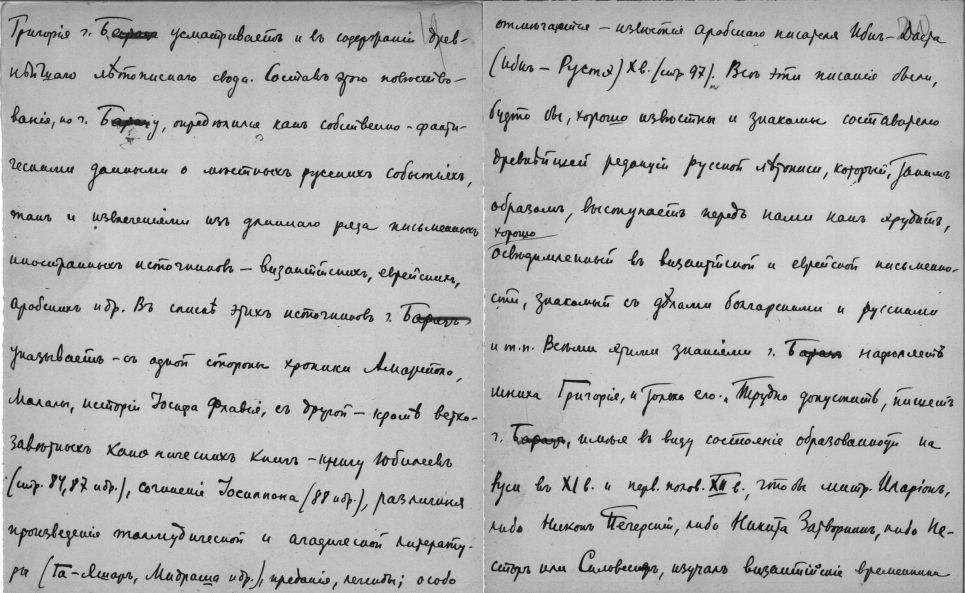 Григорія г. Барацъ усматриваетъ и въ содержаніи древ-
нѣйшаго лѣтописнаго свода. Составъ этого повѣство-
ванія, по г. Барацу, опредѣлился какъ собственно-факти-
ческими данными о мѣстныхъ русскихъ событіяхъ,
такъ и извлеченіями изъ длиннаго ряда письменныхъ
иностранныхъ источниковъ – византійскихъ, еврейскихъ,
арабскихъ и др. Въ спискѣ этихъ источниковъ г. Барацъ
указываетъ – съ одной стороны хроники Амартола,
Малалы, исторію Іосифа Флавія, съ другой – кромѣ ветхо-
завѣтныхъ каноническихъ книгъ – книгу Юбилеевъ
(стр. 84, 87 и др.), сочиненіе Іосиппона (88 и др.), различныя
произведенія талмудической и агадической литерату-
ры (Га-Яшаръ, Мидраша и др.), преданія, легенды; особо
отмѣчаются – извѣстія арабскаго писателя Ибнъ-Даста
(Ибнъ – Рустя) X в. (стр. 97). Всѣ эти писанія были,
будто бы, хорошо извѣстны и знакомы составителю
древнѣйшей редакціи русской лѣтописи, который, такимъ
образомъ, выступаетъ передъ нами какъ эрудитъ,
хорошо
освѣдомленный въ византійской и еврейской письменно-
сти, знакомый съ дѣлами болгарскими и русскими
и т.п. Всѣми этими знаніями г. Барацъ надѣляетъ
мниха Григорія, и только его. „Трудно допустить, пишетъ
г. Барацъ, имѣя въ виду состояніе образованности на
Руси въ XI в. и перв. полов. XII в., что бы митр. Иларіонъ,
либо Никонъ Печерскій, либо Никита Затворникъ, либо Не-
сторъ или Сильвестръ, изучалъ византійскіе временники